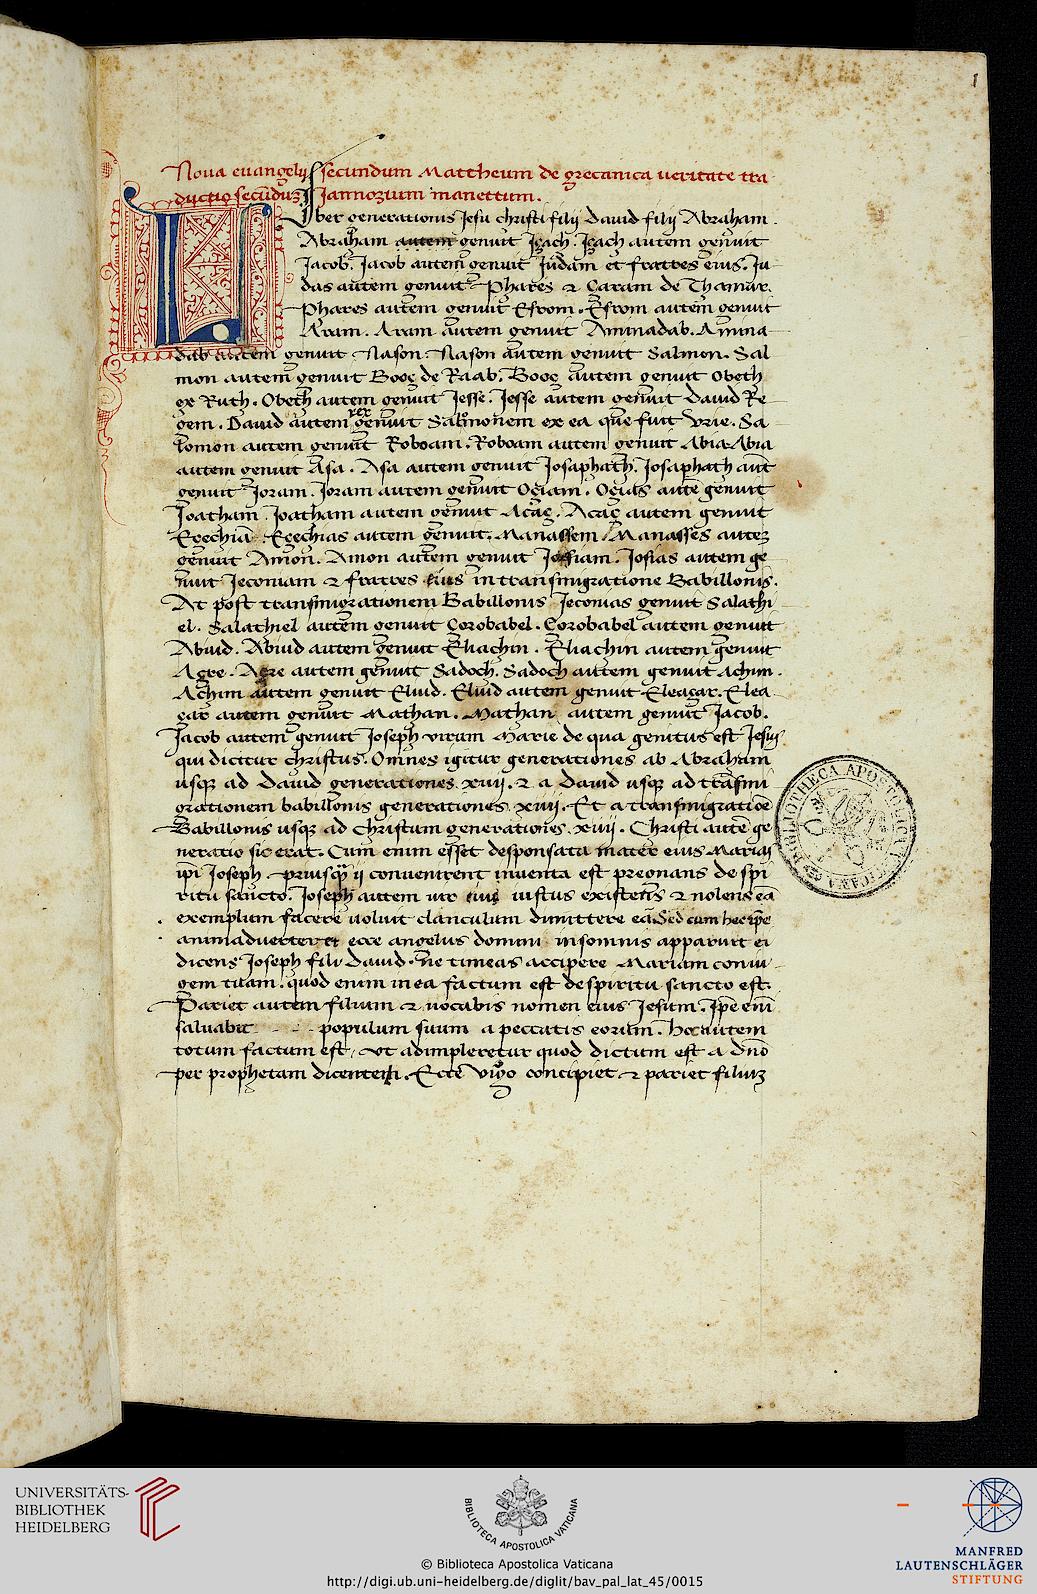 1
Noua euangelij secundum Mattheum de grecanica ueritate tra
ductio secūduʒ Jannozum manettum.
Liber generationis Jesu christi filij Dauid filij Abraham.
Abraham autem genuit Içach. Içach autem genuit
Jacob. Jacob autem genuit Judam et fratres eius. Ju
das autem genuit Phares & Çaram de Thamar.
Phares autem genuit Esrom. Esrom autem genuit
Aram. Aram autem genuit Aminadab. Amina
dab autem genuit Nason. Nason autem genuit Salmon. Sal
mon autem genuit Booç de Raab. Booç autem genuit Obeth
ex Ruth. Obeth autem genuit Jesse. Jesse autem genuit Dauid Re
gem. Dauid autem rex genuit Salomonem ex ea que fuit Vrie. Sa
lomon autem genuit Roboam. Roboam autem genuit Abia. Abia
autem genuit Asa. Asa autem genuit Josaphath. Josaphath aut̄
genuit Joram. Joram autem genuit Oçiam. Oçias autē genuit
Joatham. Joatham autem genuit Acaç. Acaç autem genuit
Eçechiā. Eçechias autem genuit Manassem. Manasses auteʒ
genuit Amon. Amon autem genuit Josiam. Josias autem ge
nuit Jeconiam & fratres eius in transmigratione Babillonis.
At post transmigrationem Babillonis Jeconias genuit Salathi
el. Salathiel autem genuit Çorobabel. Çorobabel autem genuit
Abiud. Abiud autem genuit Eliachin. Eliachin autem genuit
Açre. Açre autem genuit Sadoch. Sadoch autem genuit Achim.
Achim autem genuit Eliud. Eliud autem genuit Eleaçar. Elea
çar autem genuit Mathan. Mathan autem genuit Jacob.
Jacob autem genuit Joseph uirum Marie de qua genitus est Jesus
qui dicitur christus. Omnes igitur generationes ab Abraham
usqʒ ad Dauid generationes xiiij. & a Dauid usqʒ ad trāsmi
grationem babillonis generationes xiiij. Et a transmigratiōe
Babillonis usqʒ ad Christum generationes xiiij. Christi autē ge
neratio sic erat. Cum enim esset desponsata mater eius Maria
ip̄i Joseph priusqʒ ij conuenirent inuenta est pregnans de spi
ritu sancto. Joseph autem uir eius iustus existens & nolens eā
exemplum facere uoluit clanculum dimittere eā. Sed cum hec ip̄e
animaduerteret ecce angelus domini in somnis apparuit ei
dicens Joseph fili Dauid ne timeas accipere Mariam coniu
gem tuam. quod enim in ea factum est de spiritu sancto est.
Pariet autem filium & uocabis nomen eius Jesum. Ip̄e enī
saluabit populum suum a peccatis eorum. Hoc autem
totum factum est, ut adimpleretur quod dictum est a dn̄o
per prophetam dicentem. Ecce Virgo concipiet & pariet filiuʒ
BIBLIOTHECA APOSTOLICA VATICANA
UNIVERSITÄTS-
BIBLIOTHEK
HEIDELBERG
BIBLIOTECA APOSTOLICA VATICANA
© Biblioteca Apostolica Vaticana
http://digi.ub.uni-heidelberg.de/diglit/bav_pal_lat_45/0015
MANFRED
LAUTENSCHLÄGER
STIFTUNG